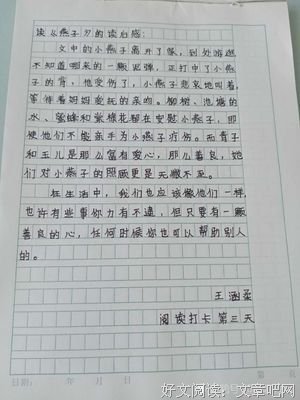 读《燕子》的读后感:
文中的小燕子离开了家,到处游逛
不知道哪来的一颗泥弹,正打中了小燕
子的背,她受伤了,小燕子悲哀地叫着,
等待着妈妈爱抚的亲吻。柳树、池塘的
水、蜜蜂和紫檀花都在安慰小燕子,即
使他们不能亲手为小燕子疗伤。而青子
和玉儿是那么富有爱心,那么善良,她
们对小燕子的照顾更是无微不至。
在生活中,我们也应该像他们一样,
也许有些事你力有不逮,但只要有一颗
善良的心,任何时候你也可以帮助别人
的。
王涵柔
阅读打卡 第三天
日期: 年 月 日 第 页
好文阅读:文章吧网